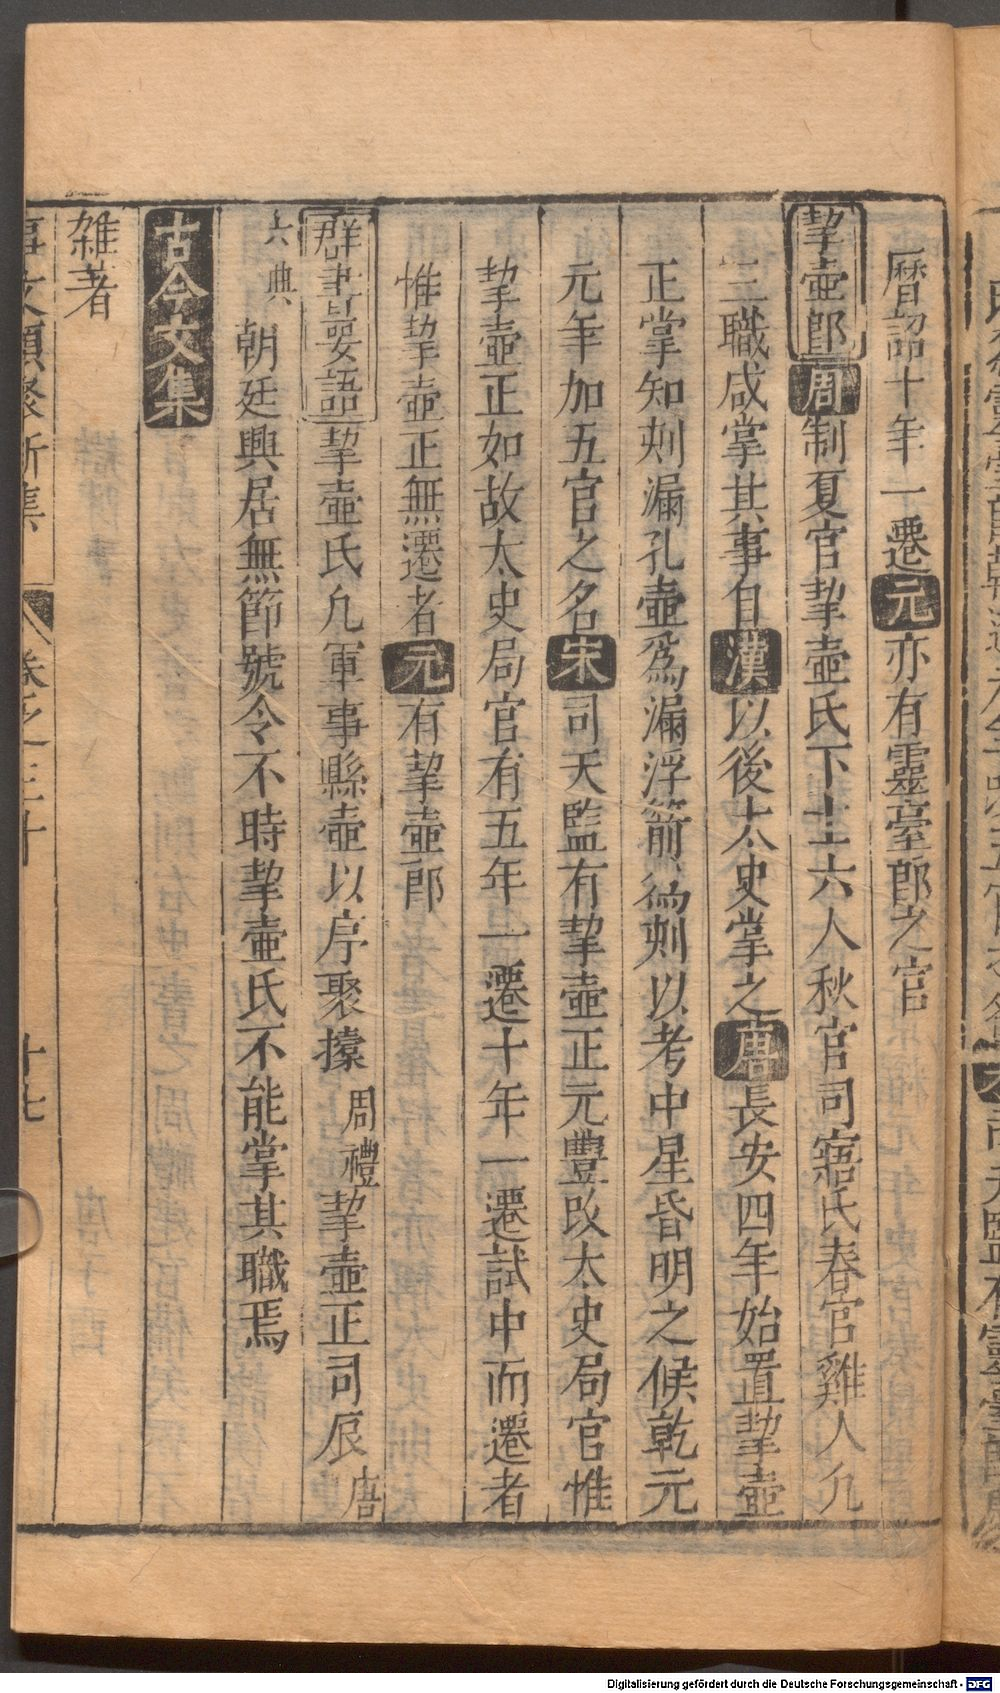 曆詔十年一遷元亦有靈臺郎之官
挈壺郎周制夏官挈壺氏下士六人秋官司寤氏春官雞人凢
三職咸掌其事自漢以後太史掌之唐長安四年始置挈壺
正掌知刻漏孔壺爲漏浮箭爲刻以考中星昏明之候乾元
元年加五官之名宋司天監有挈壺正元豐改太史局官惟
挈壺正如故太史局官有五年一遷十年一遷試中而遷者
惟挈壺正無遷者元有挈壺郎
群書要語挈壺氏凢軍事縣壺以序聚㯱周禮挈壺正司辰唐
六典朝廷興居無節號令不時挈壺氏不能掌其職焉
古今文集
雜著
事文類聚新集
卷之三十
十七
Digitalisierung gefördert durch die Deutsche Forschungsgemeinschaft - DFG